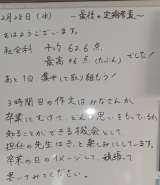 2月28日(水) ～最後の定期考査～
おはようございます。
社会科 平均 62.6点
最高 96点(たぶん)でした!
あと1回 集中して取り組もう!
3時間目の作文はみなさんが
卒業にむけて、どんな思いをもっているか
知ることができる機会として
担任の先生はきっと楽しみにしています。
卒業の日のイメージして、頑張って
書いてみてください。